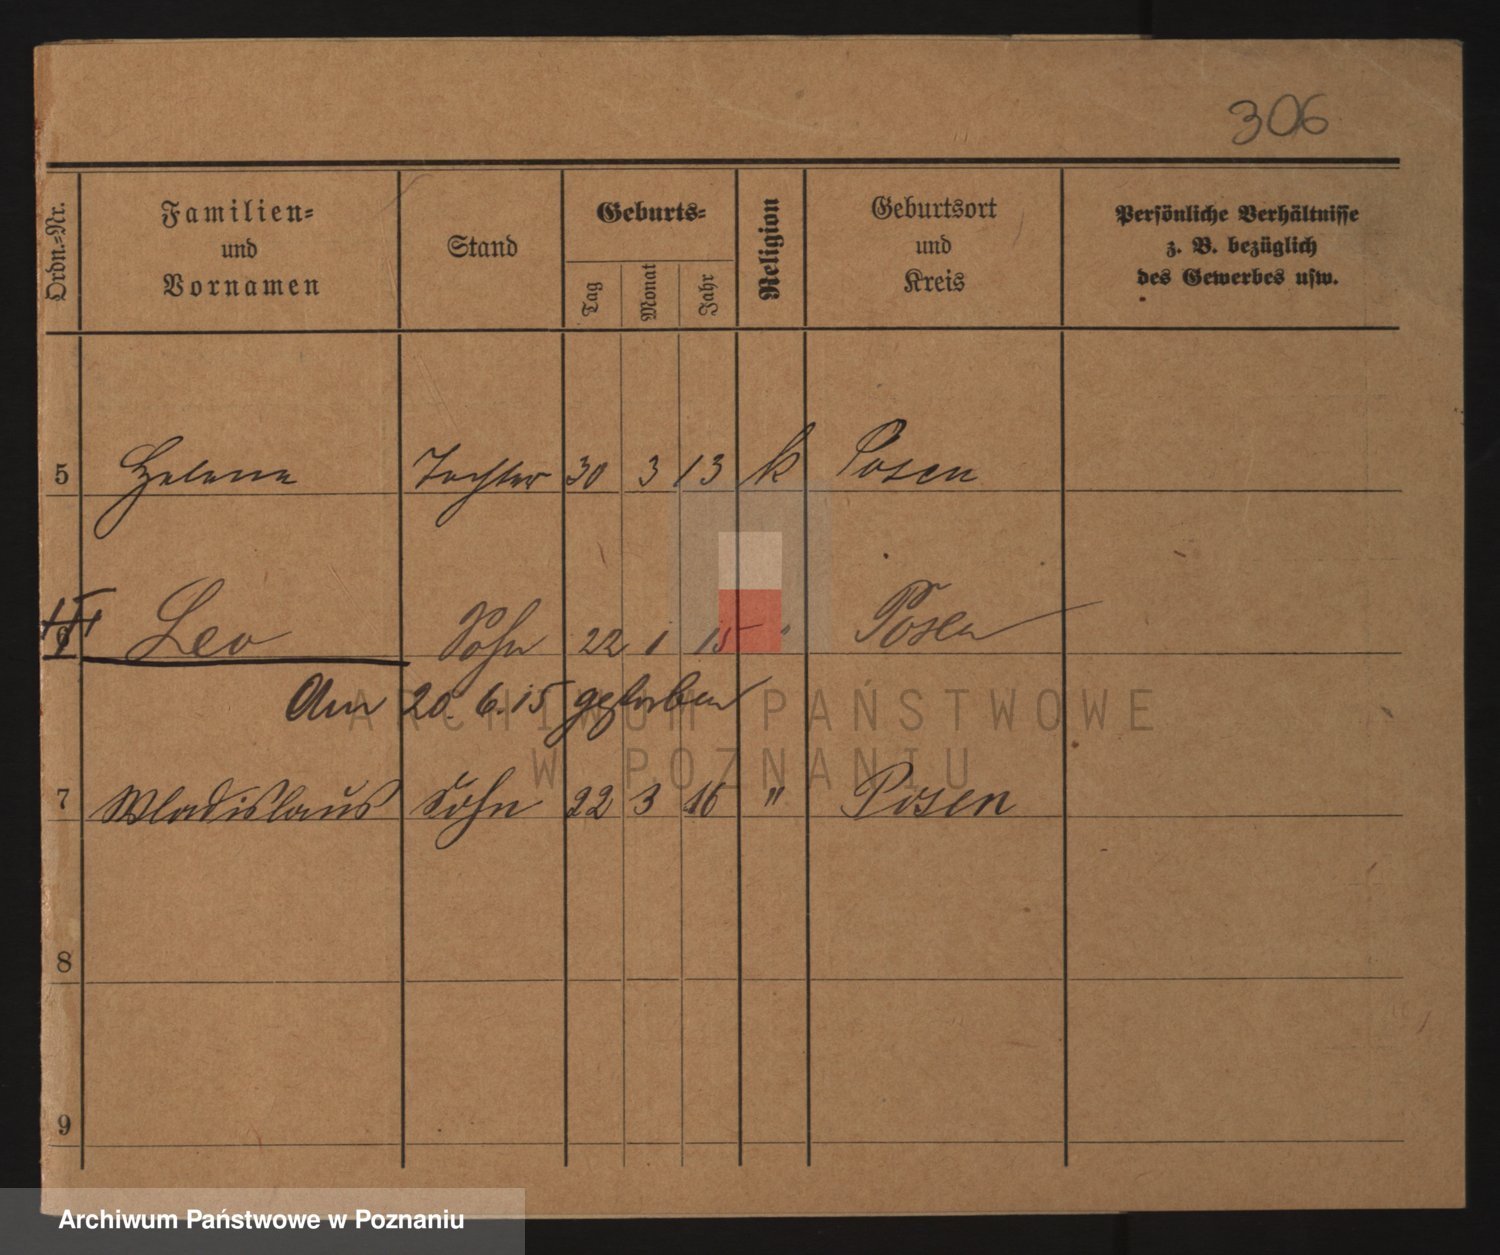 306
Ordn.=Nr.
Familien=
und
Vornamen
Stand
Geburts=
Tag
Monat
Jahr
Religion
Geburtsort
und
Kreis
Persönliche Verhältnisse
z. B. bezüglich
des Gewerbes usw.
5 Helene Tochter 30 3 13 k Posen
6 Leo Sohn 22 1 15 " Posen
Am 20.6.15 gestorben
7 Wladislaus Sohn 22 3 16 " Posen
8
9
ARCHIWUM PAŃSTWOWE
W POZNANIU
Archiwum Państwowe w Poznaniu